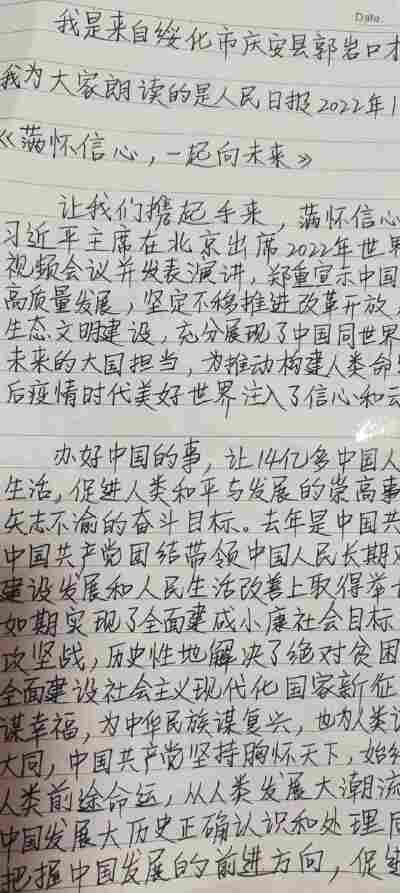 Date
我是来自绥化市庆安县郭岩口才
我为大家朗读的是人民日报2022年1
《满怀信心,一起向未来》
让我们携起手来,满怀信心
习近平主席在北京出席2022年世界
视频会议并发表演讲,郑重宣示中国
高质量发展,坚定不移推进改革开放,
生态文明建设,充分展现了中国同世界
未来的大国担当,为推动构建人类命
后疫情时代美好世界注入了信心和
办好中国的事,让14亿多中国人
生活,促进人类和平与发展的崇高事
矢志不渝的奋斗目标。去年是中国共
中国共产党团结带领中国人民长期
建设发展和人民生活改善上取得举
如期实现了全面建成小康社会目标
攻坚战,历史性地解决了绝对贫困
全面建设社会主义现代化国家新征
谋幸福,为中华民族谋复兴,也为人类
大同,中国共产党坚持胸怀天下,始
人类前途命运,从人类发展大潮流
中国发展大历史正确认识和处理同
把握中国发展的前进方向,促